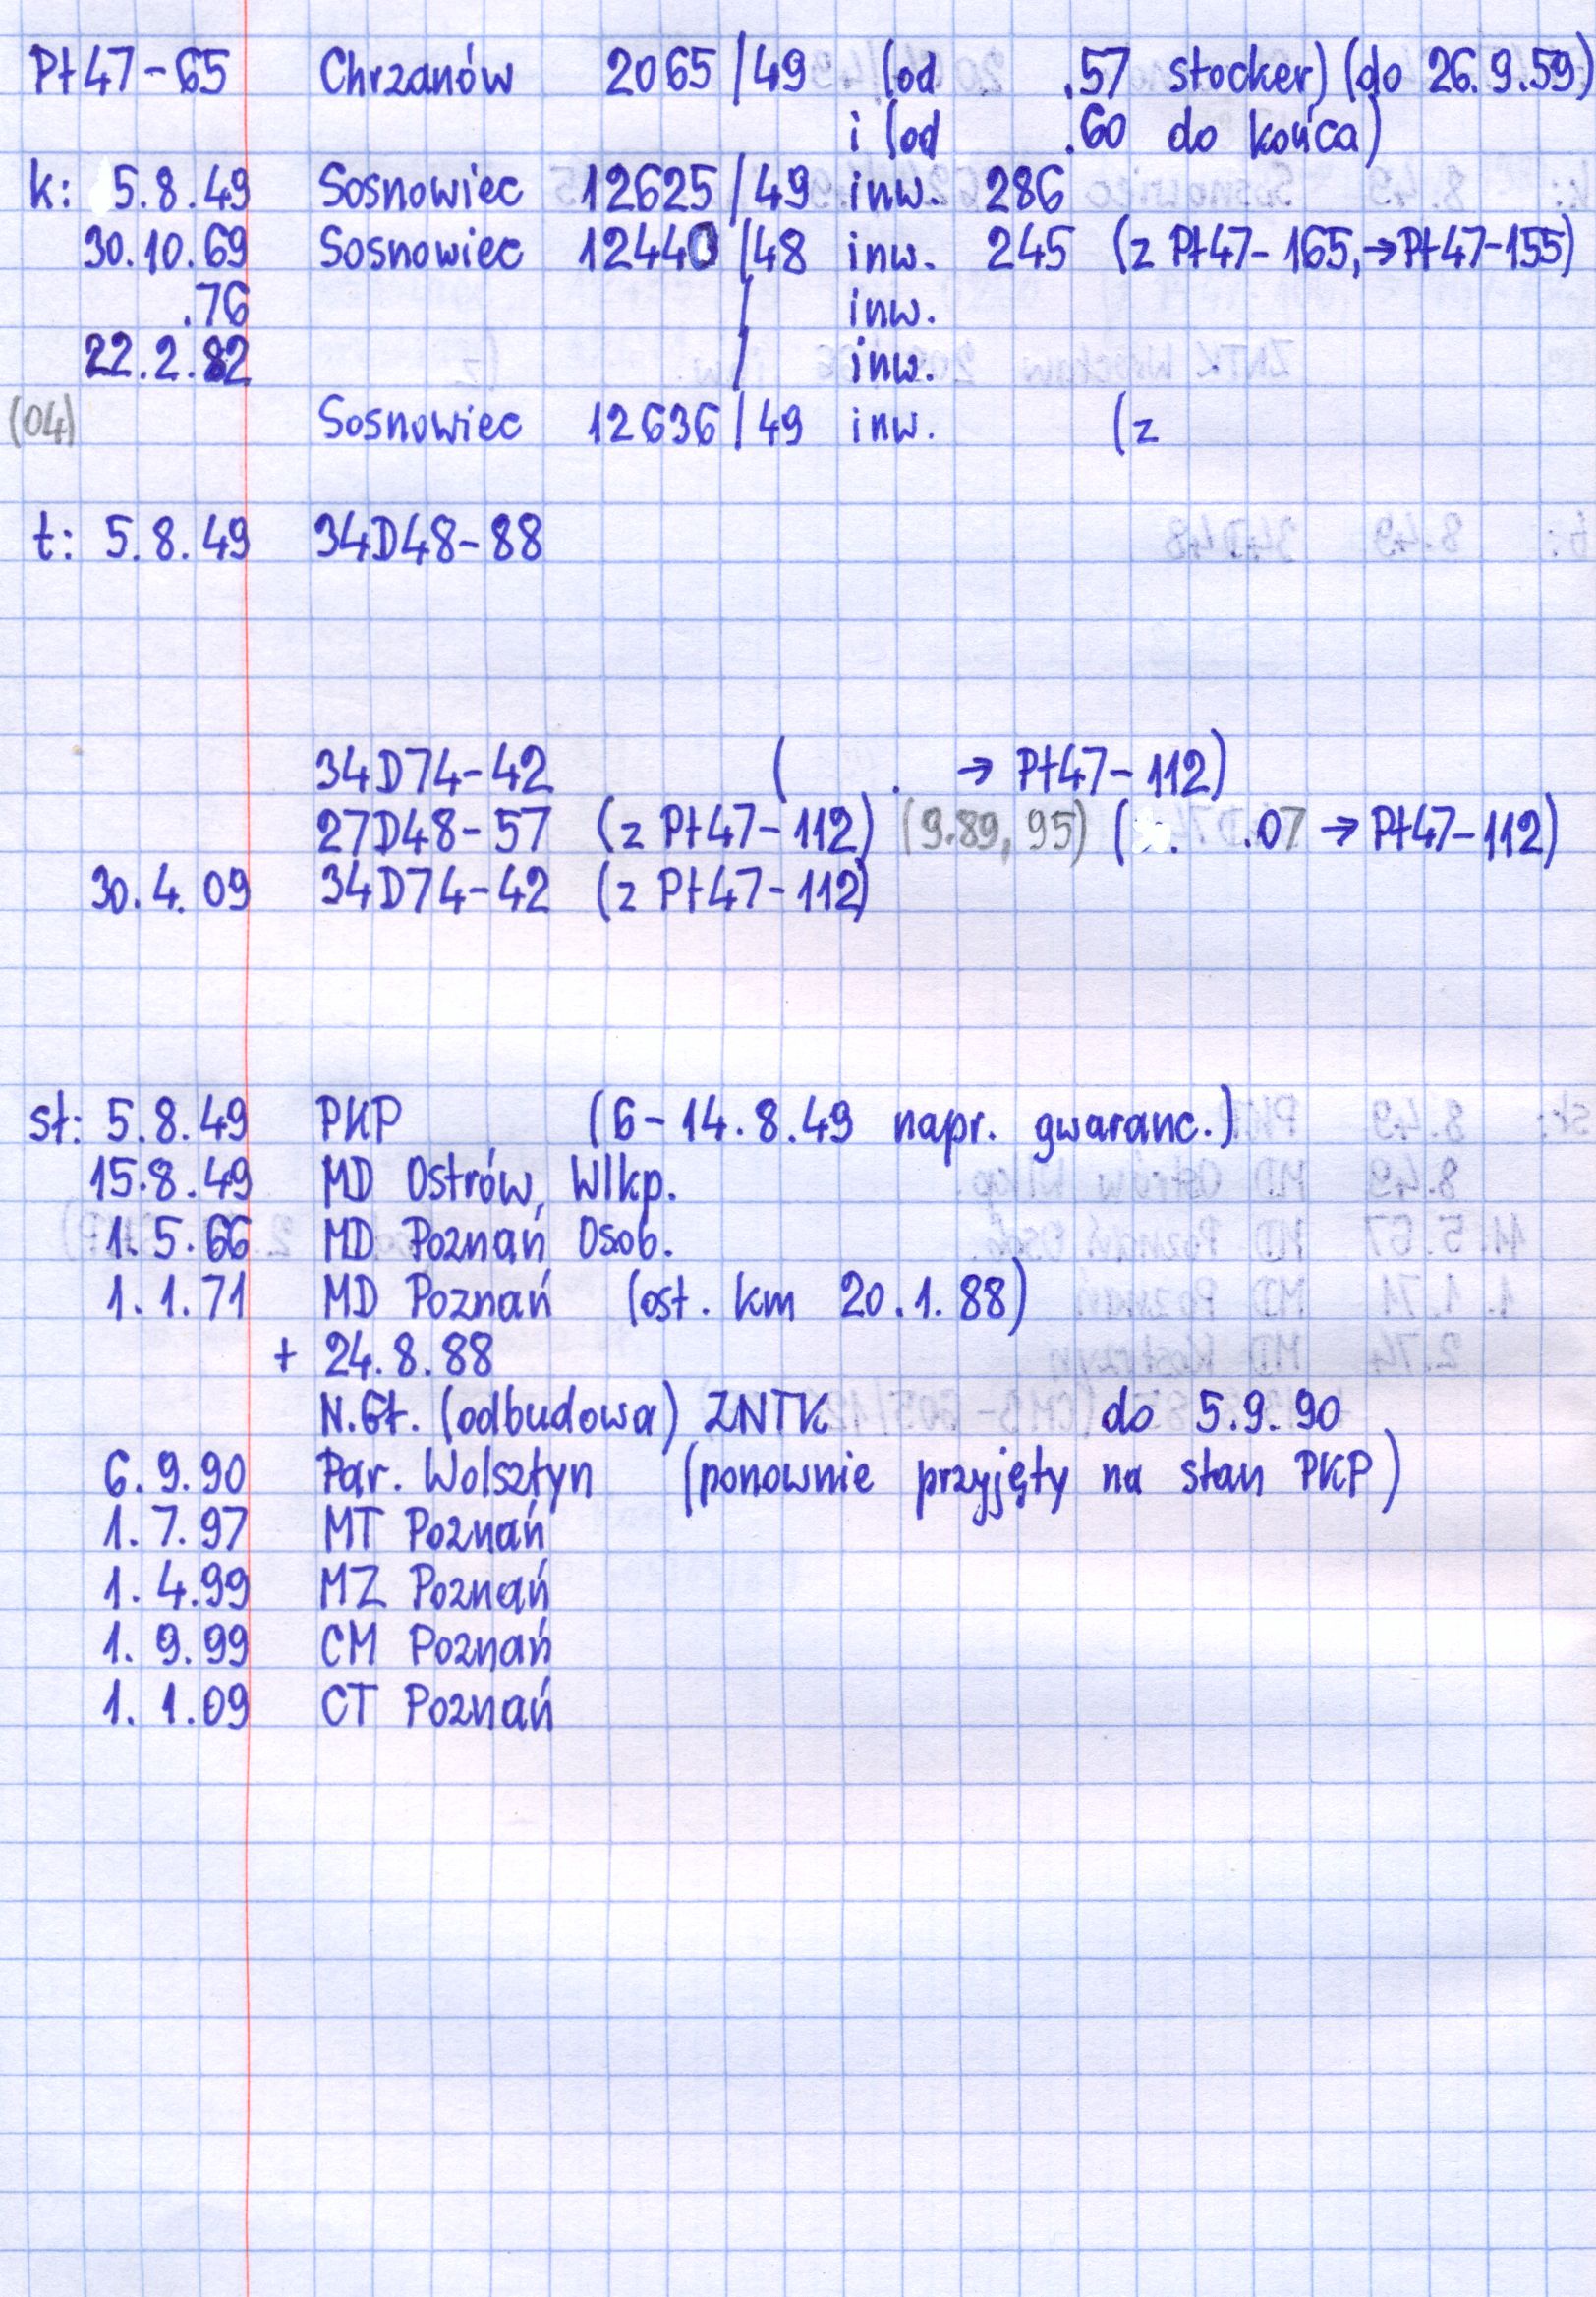 Pt47-65 Chrzanów 2065/49 (od .57 stocker) (do 26.9.59)
i (od .60 do końca)
k: 5.8.49 Sosnowiec 12625/49 inw. 286
30.10.69 Sosnowiec 12440/48 inw. 245 (z Pt47-165,→Pt47-155)
.76 / inw.
22.2.82 / inw.
(04) Sosnowiec 12636/49 inw. (z
t: 5.8.49 34D48-88
34D74-42 ( . → Pt47-112)
27D48-57 (z Pt47-112) (9.89, 95) ( . .07 → Pt47-112)
30.4.09 34D74-42 (z Pt47-112)
st: 5.8.49 PKP (6-14.8.49 napr. gwaranc.)
15.8.49 MD Ostrów Wlkp.
1.5.66 MD Poznań Osob.
1.1.71 MD Poznań (ost. km 20.1.88)
+ 24.8.88
N.Gł. (odbudowa) ZNTK do 5.9.90
6.9.90 Par. Wolsztyn (ponownie przyjęty na stan PKP)
1.7.97 MT Poznań
1.4.99 MZ Poznań
1.9.99 CM Poznań
1.1.09 CT Poznań